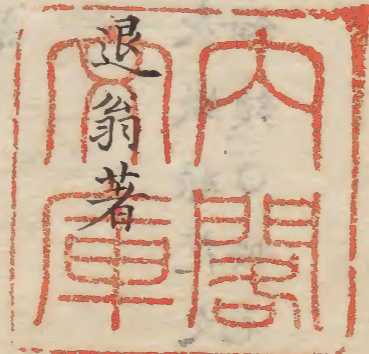 內閣
文庫
退翁著